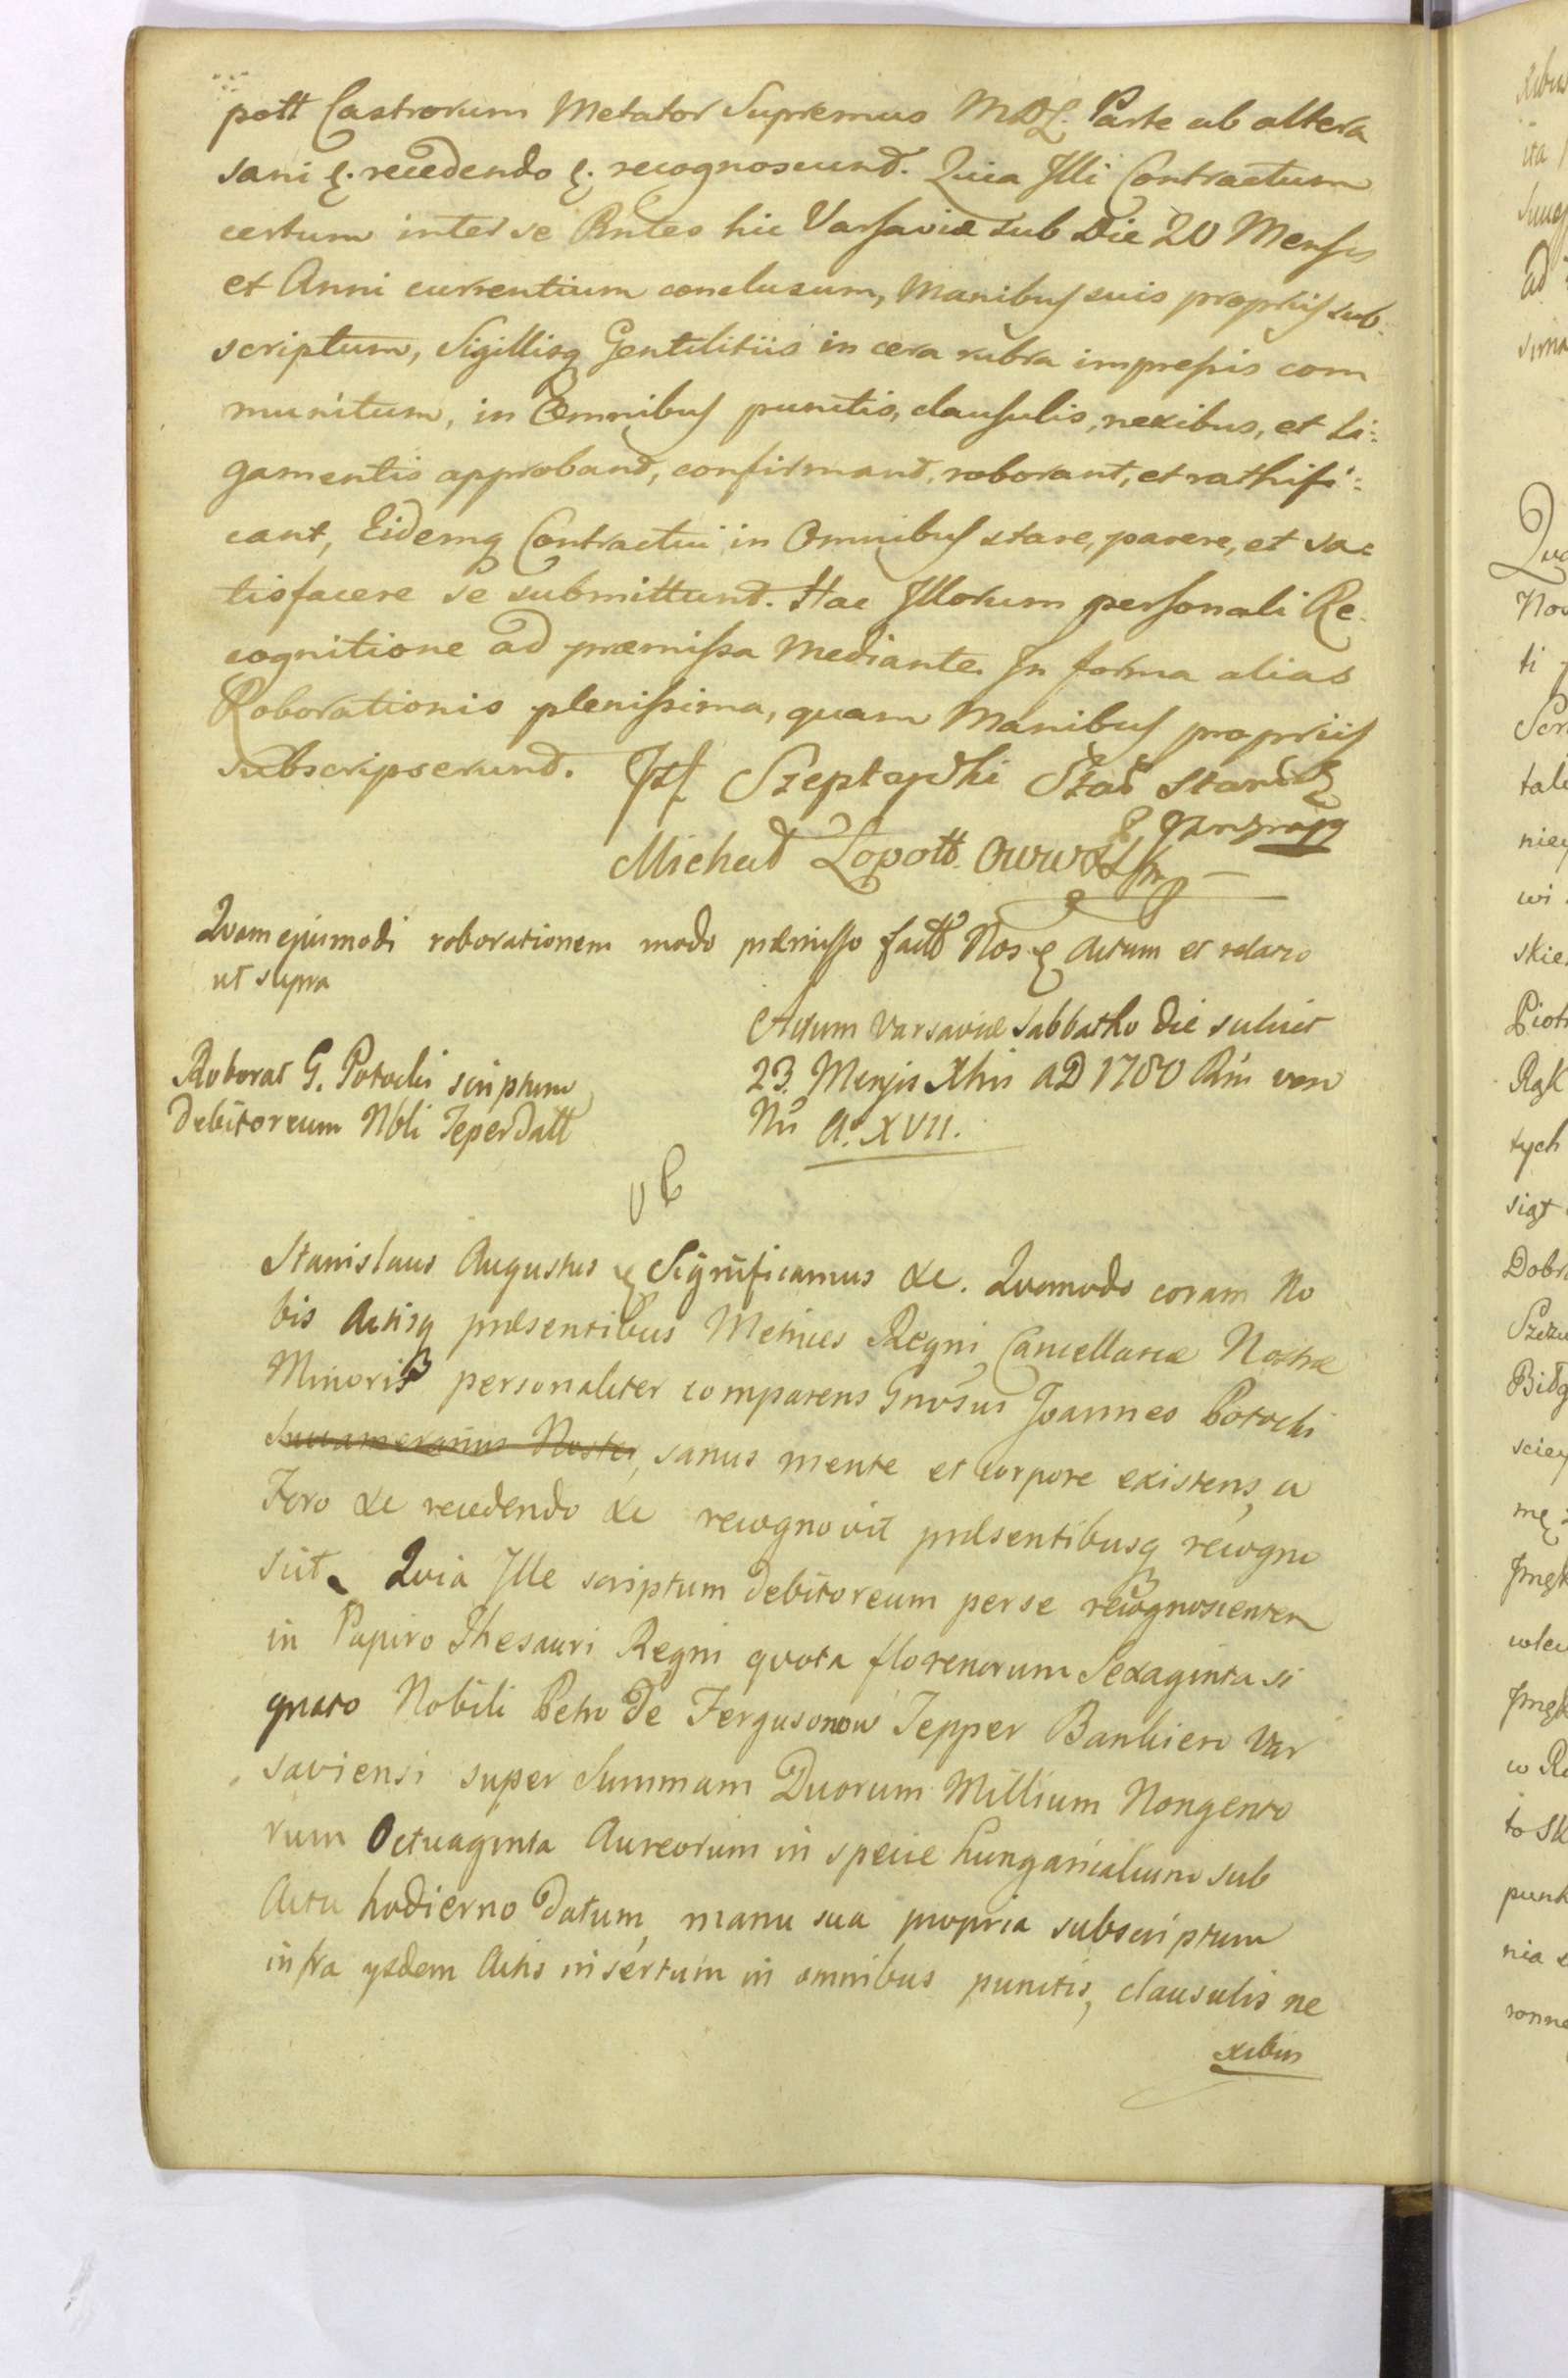 pott Castrorum Metator Supremus MDL. Parte ab altera
sani &. recedendo &. recognoscund. Quia Illi Contractum
certum inter se Antes hic Varsaviæ sub Die 20 Mensis
et Anni currentium conclusum, Manibus suis propriis sub-
scriptum, Sigillisq Gentilitiis in cera rubra impressis com
munitum, in Omnibus punctis, clausulis, nexibus, et Li=
gamentis approband, confirmand, roborant, et rathifi=
cant, Eidemq Contractui in Omnibus stare, parere, et sa=
tisfacere se submittund. Hac Illorum personali Re-
cognitione ad præmissa Mediante. In forma alias
Roborationis plenissima, quam Manibus propriis
subscripserund.
Szeptycki
Michał Łopott
Quam ejusmodi roborationem modo præmisso fact Nos & Actum et relatio
ut supra
Actum Varsaviæ Sabbatho die scilicet
23. Mensis Xbris AD 1780 Rni veo
Nri A. XVII.
Roborat G. Potocki scriptum
Debitoreum Nbli Teper datt
Stanislaus Augustus & Significamus &c. Quomodo coram No
bis Actisq præsentibus Metrices Regni Cancellariæ Nostræ
Minoris personaliter comparens Gnosus Joannes Potocki
Succamerarius Noster, sanus mente et corpore existens, a
Foro &c recedendo &c recognovit præsentibusq recogno
scit. Quia Ille scriptum debitoreum per se recognoscentem
in Papiro Thesauri Regni quota florenorum Sexaginta si
gnato Nobili Petro De Fergusonow Tepper Bankiero Var
saviensi super Summam Duorum Millium Nongento
rum Octuaginta Aureorum in specie hungaricalium sub
Actu hodierno Datum, manu sua propria subscriptum
infra ysdem Actis insertum in omnibus punctis, clausulis ne
xibus